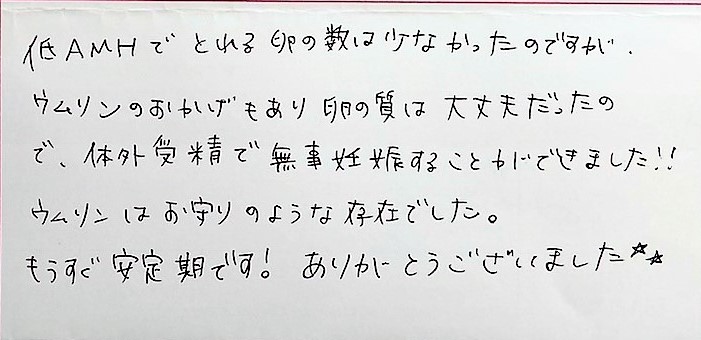 低AMHで とれる卵の数は少なかったのですが、
ウムリンのおかげもあり 卵の質は 大丈夫だったの
で、体外受精で 無事妊娠することができました!!
ウムリンは お守りのような存在でした。
もうすぐ 安定期です! ありがとうございました☆☆